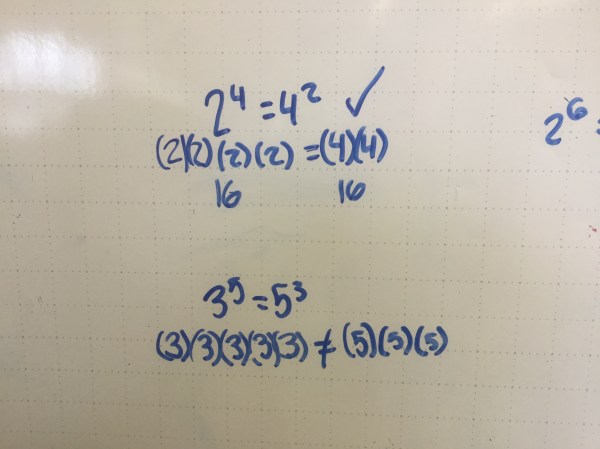 2⁴ = 4² ✓
(2)(2)(2)(2) = (4)(4)
16 16
2⁶ =
3⁵ = 5³
(3)(3)(3)(3)(3) ≠ (5)(5)(5)